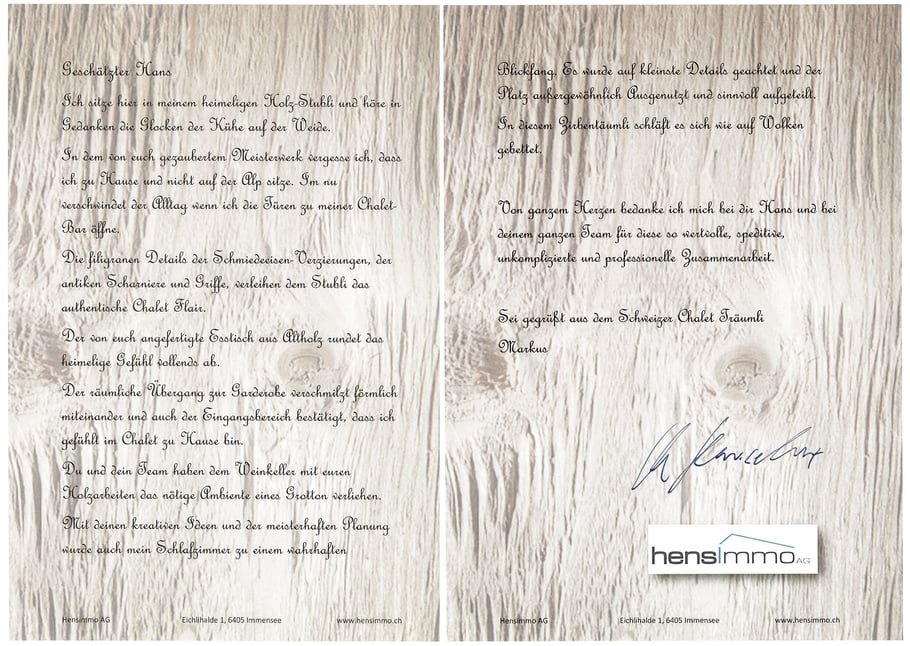 Geschätzter Hans
Ich sitze hier in meinem heimeligen Holz-Stubli und höre in
Gedanken die Glocken der Kühe auf der Weide.
In dem von euch gezaubertem Meisterwerk vergesse ich, dass
ich zu Hause und nicht auf der Alp sitze. Im nu
verschwindet der Alltag wenn ich die Türen zu meiner Chalet-
Bar öffne.
Die filigranen Details der Schmiedeeisen-Verzierungen, der
antiken Scharniere und Griffe, verleihen dem Stubli das
authentische Chalet Flair.
Der von euch angefertigte Esstisch aus Altholz rundet das
heimelige Gefühl vollends ab.
Der räumliche Übergang zur Garderobe verschmilzt förmlich
miteinander und auch der Eingangsbereich bestätigt, dass ich
gefühlt im Chalet zu Hause bin.
Du und dein Team haben dem Weinkeller mit euren
Holzarbeiten das nötige Ambiente eines Grotton verliehen.
Mit deinen kreativen Ideen und der meisterhaften Planung
wurde auch mein Schlafzimmer zu einem wahrhaften
Hensimmo AG Eichlihalde 1, 6405 Immensee www.hensimmo.ch
Blickfang. Es wurde auf kleinste Details geachtet und der
Platz außergewöhnlich Ausgenutzt und sinnvoll aufgeteilt.
In diesem Zirbenträumli schläft es sich wie auf Wolken
gebettet.
Von ganzem Herzen bedanke ich mich bei dir Hans und bei
deinem ganzen Team für diese so wertvolle, speditive,
unkomplizierte und professionelle Zusammenarbeit.
Sei gegrüßt aus dem Schweizer Chalet Träumli
Markus
hensImmo AG
Hensimmo AG Eichlihalde 1, 6405 Immensee www.hensimmo.ch